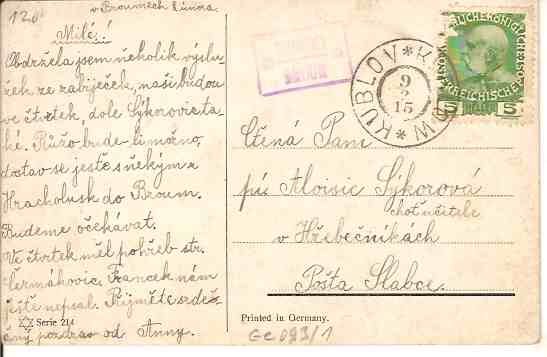 v Broumech 8 února.
Milé!
Obdržela jsem několik výslu-
žek ze zabíječek, naši budou
ve čtvrtek, dole Sýkorovic ta-
ké. Růžo bude-li možno,
dostav se ještě s někým z
Hracholusk do Broum.
Budeme očekávat.
Ve čtvrtek měl pohřeb str.
Čermákovic. Francek nám
ještě nepsal. Přijměte srdeč
ný pozdrav od Anny.
Serie 214
KUBLOV * KUBLOW *
9
2
15
5 5
Ctěná Paní
pí Aloisie Sýkorová
choť učitele
v Hřebečníkách
Pošta Slabce.
Printed in Germany.
Ge 093/1